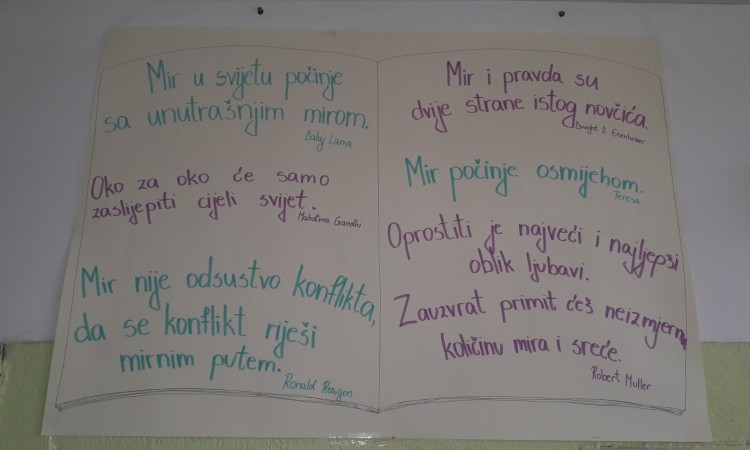 Mir u svijetu počinje
sa unutrašnjim mirom.
Dalaj Lama
Oko za oko će samo
zaslijepiti cijeli svijet.
Mahatma Gandhi
Mir nije odsustvo konflikta,
da se konflikt riješi
mirnim putem.
Ronald Reagon
Mir i pravda su
dvije strane istog novčića.
Dwight D. Eisenhower
Mir počinje osmijehom.
Teresa
Oprostiti je najveći i najljepši
oblik ljubavi.
Zauzvrat primit ćeš neizmjernu
količinu mira i sreće.
Robert Muller